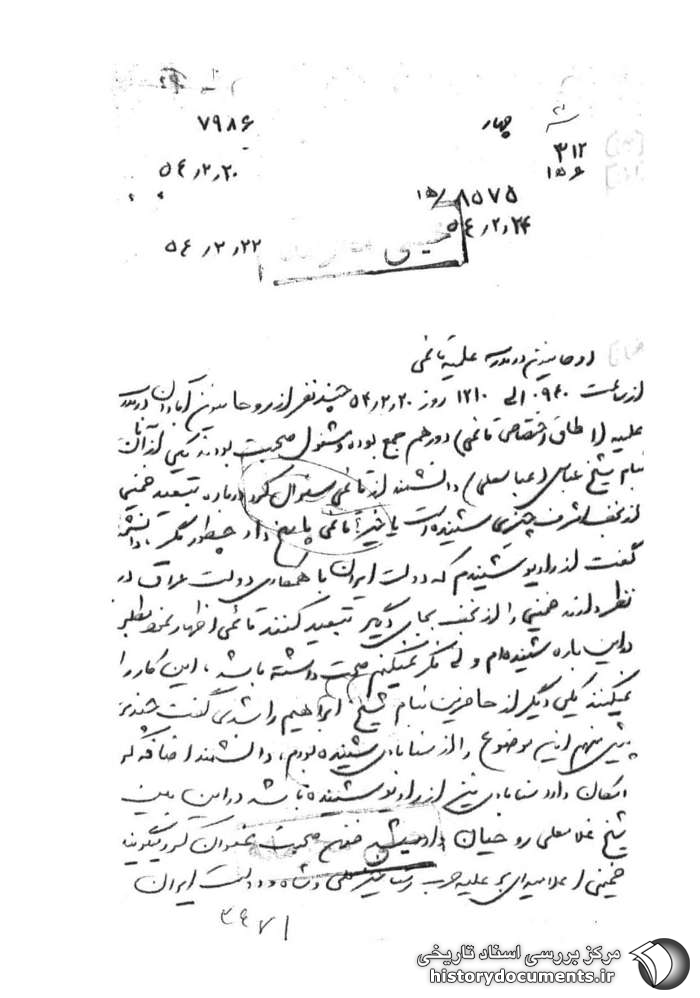 چهار ۷۹۸۶
۳۱۲
۱۵۶ ۵۴٫۲٫۲۰
۱۵/۸۵۷۵
۵۴٫۲٫۲۴
۵۴٫۲٫۲۲
روحانیون در مدرسه علمیه قائمی
از ساعت ۰۹۴۰ الی ۱۲۱۰ روز ۵۴٫۲٫۲۰ چند نفر از روحانیون آبادان در مدرسه
علمیه (اطاق اختصاصی قائمی) دور هم جمع بوده و مشغول صحبت بودند یکی از آنان
بنام شیخ عباس (عباسعلی) دانشمند از قائمی سئوال کرد درباره تبعید خمینی
از نجف اشرف چیزی شنیده است یا خیر قائمی پاسخ داد چطور مگر. دانشمند
گفت از رادیو شنیدم که دولت ایران با همکاری دولت عراق در
نظر دارند خمینی را از نجف بجای دیگر تبعید کنند قائمی اظهار نمود مطلبی
در این باره شنیده‌ام ولی فکر نمیکنم صحت داشته باشد، این کار را
نمیکنند یکی دیگر از حاضرین بنام شیخ ابراهیم راشدی گفت چندی
پیش منهم این موضوع را از سنابادی شنیده بودم، دانشمند اضافه کرد
امکان دارد سنابادی نیز از رادیو شنیده باشد در این بین
شیخ غلامعلی روحیان صحبت کرد میگویند
خمینی اعلامیه‌ای بر علیه حزب رستاخیز ملی و شاه و دولت ایران
۳۴۷۱
مرکز بررسی اسناد تاریخی
historydocuments.ir